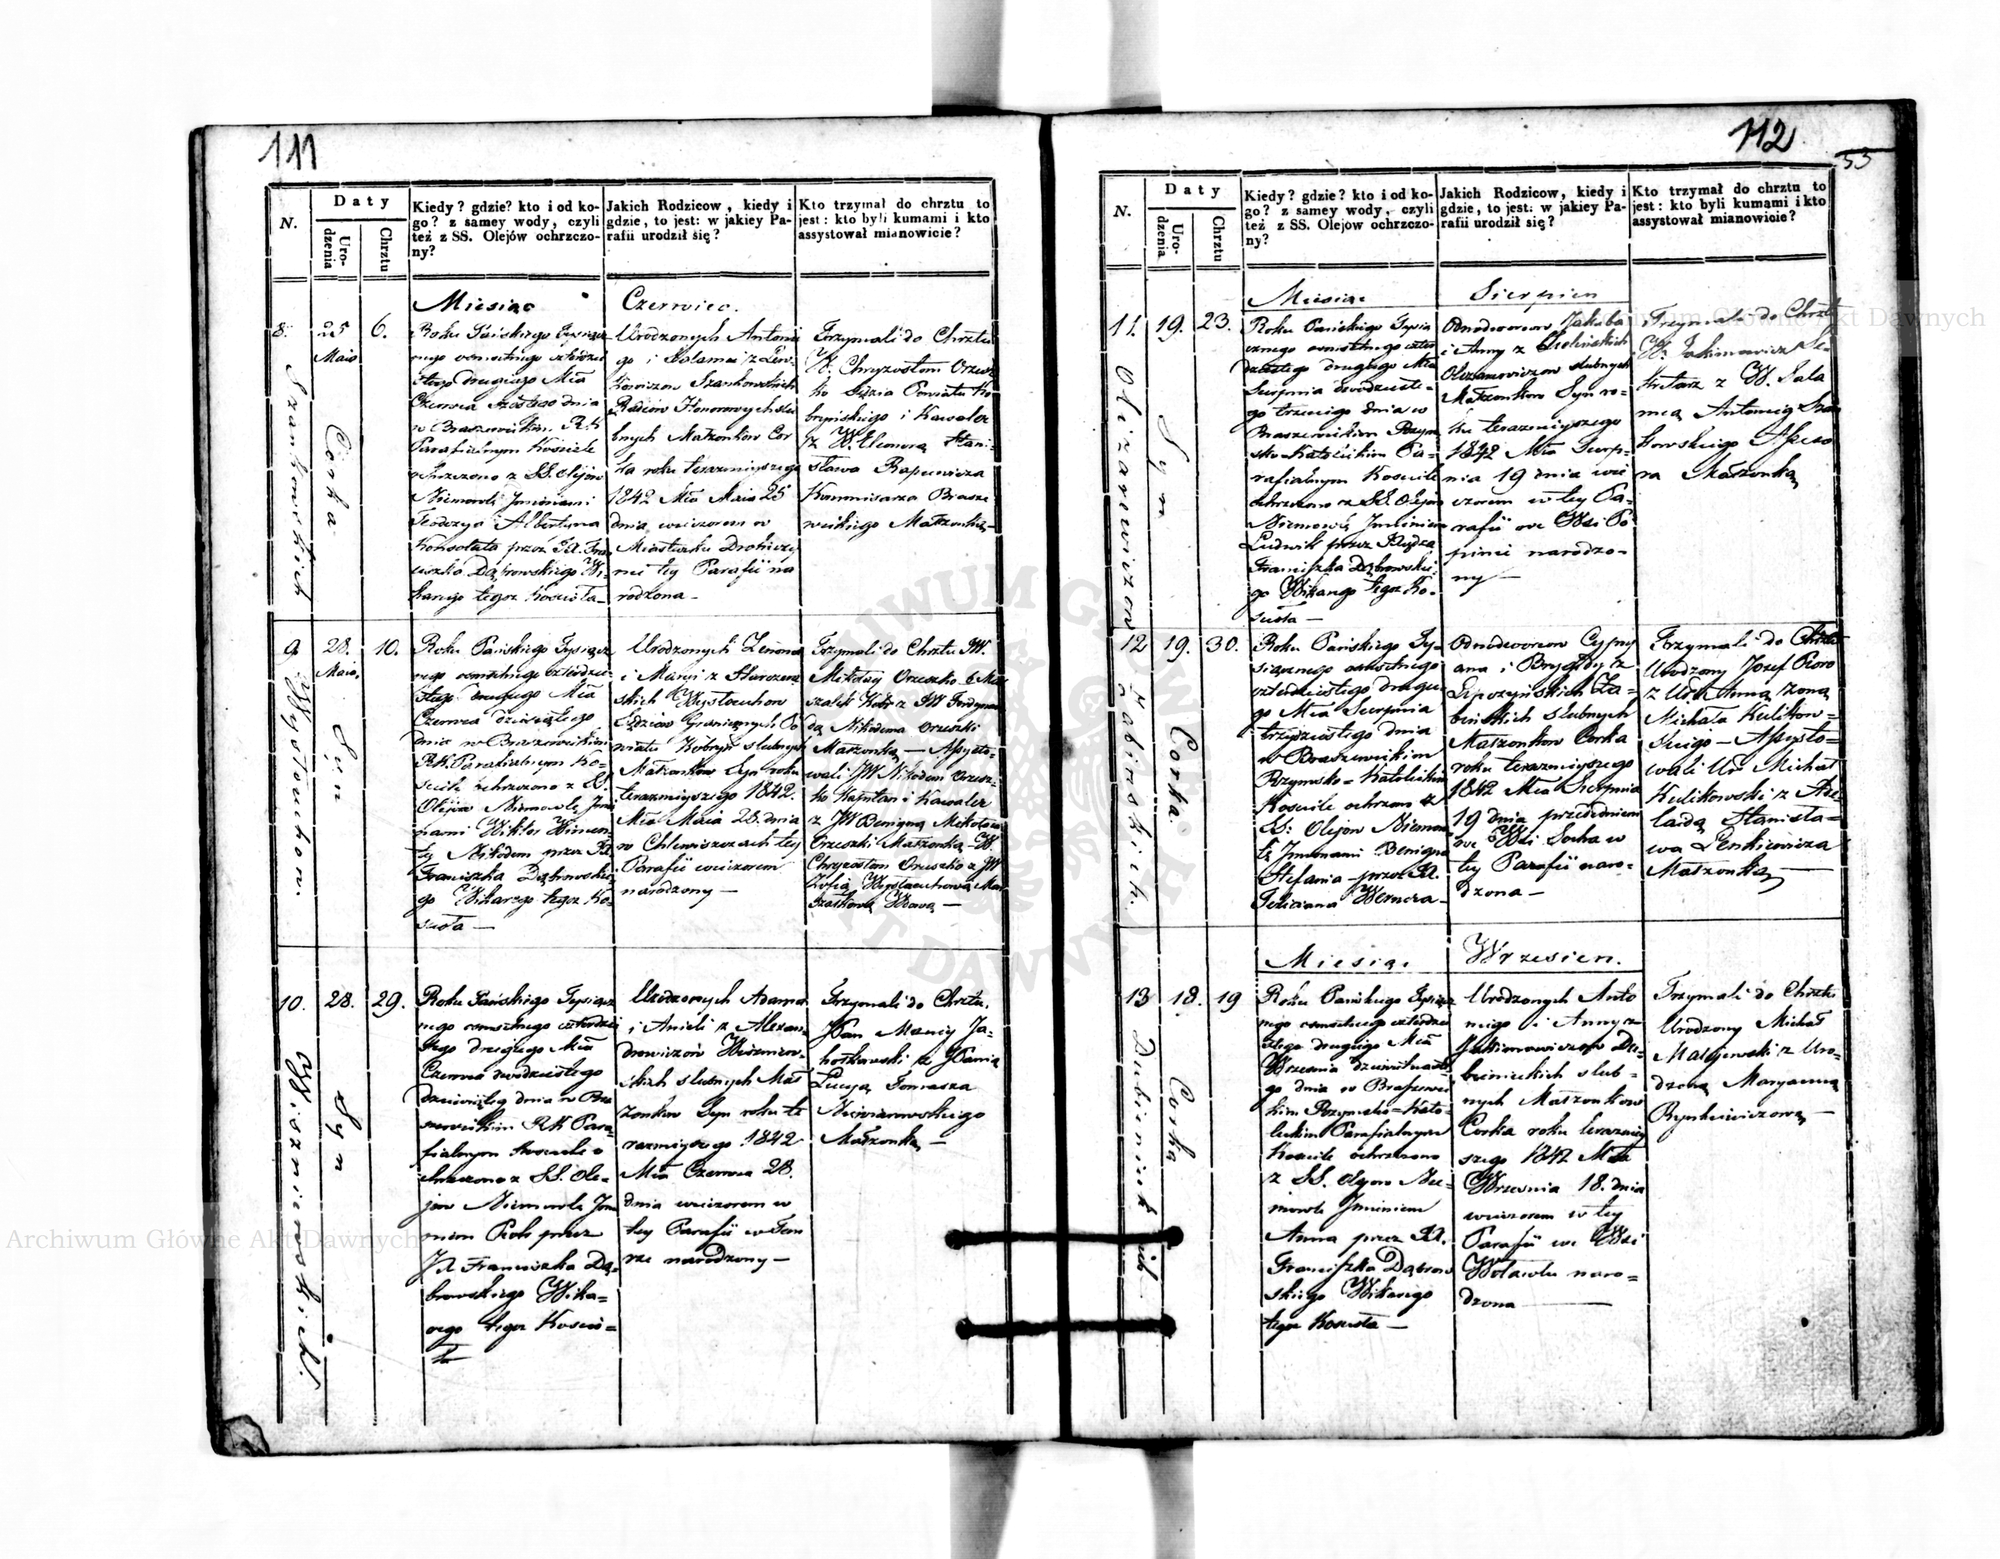 111
N.
Daty
Uro-
dzenia
Chrztu
Kiedy? gdzie? kto i od ko-
go? z samey wody, czyli
też z SS. Olejów ochrzczo-
ny?
Jakich Rodzicow, kiedy i
gdzie, to jest: w jakiey Pa-
rafii urodził się?
Kto trzymał do chrztu to
jest: kto byli kumami i kto
assystował mianowicie?
Miesiąc Czerwiec.
8. 25 Maia 6.
Szantkowskich
Córka
Roku Pańskiego Tysiącz
nego osmsetnego czterdzie
stego drugiego Mca
Czerwca szóstego dnia
w Braszewickim R. K.
Parafialnym Kościele
ochrzczono z SS. Olejów
Niemowle Imionami
Teodozya Albertyna
Konsolata przez JX. Fran
ciszka Dąbrowskiego Wi-
karego tegoż Kościoła
Urodzonych Antoni
go i
Radców Honorowych słu
bnych Małżonkow Cor
ka roku terazmieyszego
1842 Mca Maia 25
dnia wieczorem w
Miasteczku Drohiczy
nie tey Parafii na
rodzona
Trzymali do Chrztu
W. Chryzostom Orzesz
ko Sędzia Powiatu Ko
bryńskiego i Kawaler
z W. Eleonorą Stani-
sława Rapcewicza
Kommisarza Brasze
wickiego Małżonką
9. 28. Maia 10.
Wysłouchow.
Syn
Roku Pańskiego Tysiącz
nego osmsetnego czterdzie
stego drugiego Mca
Czerwca dziesiątego
dnia w Braszewickim
R.K. Parafialnym Ko-
ściele ochrzczono z SS.
Olejow Niemowlę Imio
nami Wiktor Wincen
ty Nikodem przez JX.
Franciszka Dąbrowskie
go Wikarego tegoż Ko
ścioła
Urodzonych Zenona
i Maryi z
skich Wysłouchow
Sędziow Granicznych Po
wiatu Kobryń. słubnych
Małżonkow Syn roku
terazmieyszego 1842.
Mca Maia 28. dnia
w Chlewiszczach tey
Parafii wieczorem
narodzony
Trzymali do Chrztu JW.
Mikołay Orzeszko B. Mar
szałek Kobr: z JW Ferdynan
dą Nikodema Orzeszki
Małżonką — Assysto-
wali JW Nikodem Orzesz-
ko Kapitan i Kawaler
z JW Benigną Mikołaia
Orzeszki Małżonką — W
Chryzostom Orzeszko z JW
Zofią Wysłouchową Mar
szałkową Wdową
10. 28. 29.
Wiszniewskich.
Syn
Roku Pańskiego Tysiącz
nego osmsetnego czterdzie
stego drugiego Mca
Czerwca dwódziestego
dziewiątego dnia w Bra
szewickim RK Para-
fialnym Kościele o
chrzczono z SS. Ole-
jow Niemowle Imie
niem Piotr przez
JX Franciszka Dą-
browskiego Wika-
rego tegoż Kościo-
ła
Urodzonych Adama
i Anieli z Alexan-
drowiczów Wiszniew-
skich słubnych Mał
żonkow Syn roku te
razmieyszego 1842
Mca Czerwca 28.
dnia wieczorem w
tey Parafii w
narodzony
Trzymali do Chrztu
JPan Maciej Ja-
z JPanią
Lucyą Tomasza
Małżonką
112
53
N.
Daty
Uro-
dzenia
Chrztu
Kiedy? gdzie? kto i od ko-
go? z samey wody, czyli
też z SS. Olejow ochrzczo-
ny?
Jakich Rodzicow, kiedy i
gdzie, to jest: w jakiey Pa-
rafii urodził się?
Kto trzymał do chrztu to
jest: kto byli kumami i kto
assystował mianowicie?
Miesiąc Sierpien
11. 19. 23.
Olizarowiczow
Syn
Roku Pańskiego Tysią
cznego osmsetnego czter
dziestego drugiego Mca
Sierpnia dwodzieste-
go trzeciego dnia w
Braszewickim Rzym
sko Katolickim Pa-
rafialnym Kościele
ochrzczono z SS. Olejow
Niemowlę Imieniem
Ludwik przez Xiędza
Franciszka Dąbrowskie-
go Wikarego tegoż Ko-
ścioła
Odnodworcow Jakóba
i Anny z
Olizarowiczow słubnych
Małżonkow Syn ro-
ku terazmieyszego
1842 Mca Sierp-
nia 19 dnia wie
czorem w tey Pa-
rafii we Wsi Po
pinie narodzo-
ny
Trzymali do Chrztu
W. Jakimowicz Se-
kretarz z W. Sala
meą Antoniego Szan
kowskiego Assesso
ra Małżonką
12 19. 30.
Żabińskich.
Corka
Roku Pańskiego Ty-
siącznego osmsetnego
czterdziestego drugie
go Mca Sierpnia
trzydziestego dnia
w Braszewickim
Rzymsko-Katolickim
Kościele ochrzczono z
SS: Olejow Niemow
lę Imionami Benigna
Stefania przez JX.
Feliciana Wernera
Odnodworcow Cypry
ana i Brygidy z
Lipczyńskich Ża-
bińskich słubnych
Małżonkow Corka
roku terazmieyszego
1842 Mca Sierpnia
19 dnia przededniem
we Wsi Socha w
tey Parafii naro-
dzona
Trzymali do Chrztu
Urodzony Jozef
z Ur: Anną żoną
Michała Kulikow-
skiego — Assysto-
wali Ur Michał
Kulikowski z Ade-
laidą Stanisła-
wa Penkiewicza
Małżonką
Miesiąc Wrzesien.
13 18. 19
Corka
Roku Pańskiego Tysiącz
nego osmsetnego czterdzie
stego drugiego Mca
Września dziewiętnaste
go dnia w Braszewic
kim Rzymsko-Kato-
lickim Parafialnym
Kościele ochrzczono
z SS. Olejow Nie-
mowle Imieniem
Anna przez JX.
Franciszka Dąbrow
skiego Wikarego
tegoż Kościoła
Urodzonych Anto
niego i Anny z
Jakimowiczow Du-
bienieckich słub-
nych Małżonkow
Corka roku terazniey
szego 1842 Mca
Września 18. dnia
wieczorem w tey
Parafii we Wsi
Woławlu naro-
dzona
Trzymali do Chrztu
Urodzony Michał
Malejewski z Uro-
dzoną Maryanną
Rynkiewiczową
Archiwum Główne Akt Dawnych
Archiwum Główne Akt Dawnych
ARCHIWUM GŁÓWNE AKT DAWNYCH